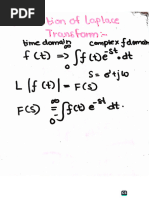 tion of Laplace
Transform:-
time domain complex f domain
f(t) ⇒ ∫₀^∞ f(t) e^-st . dt
S = σ + jω
L |f(t)| = F(S)
F(S) = ∫₀^∞ f(t) e^-st dt.